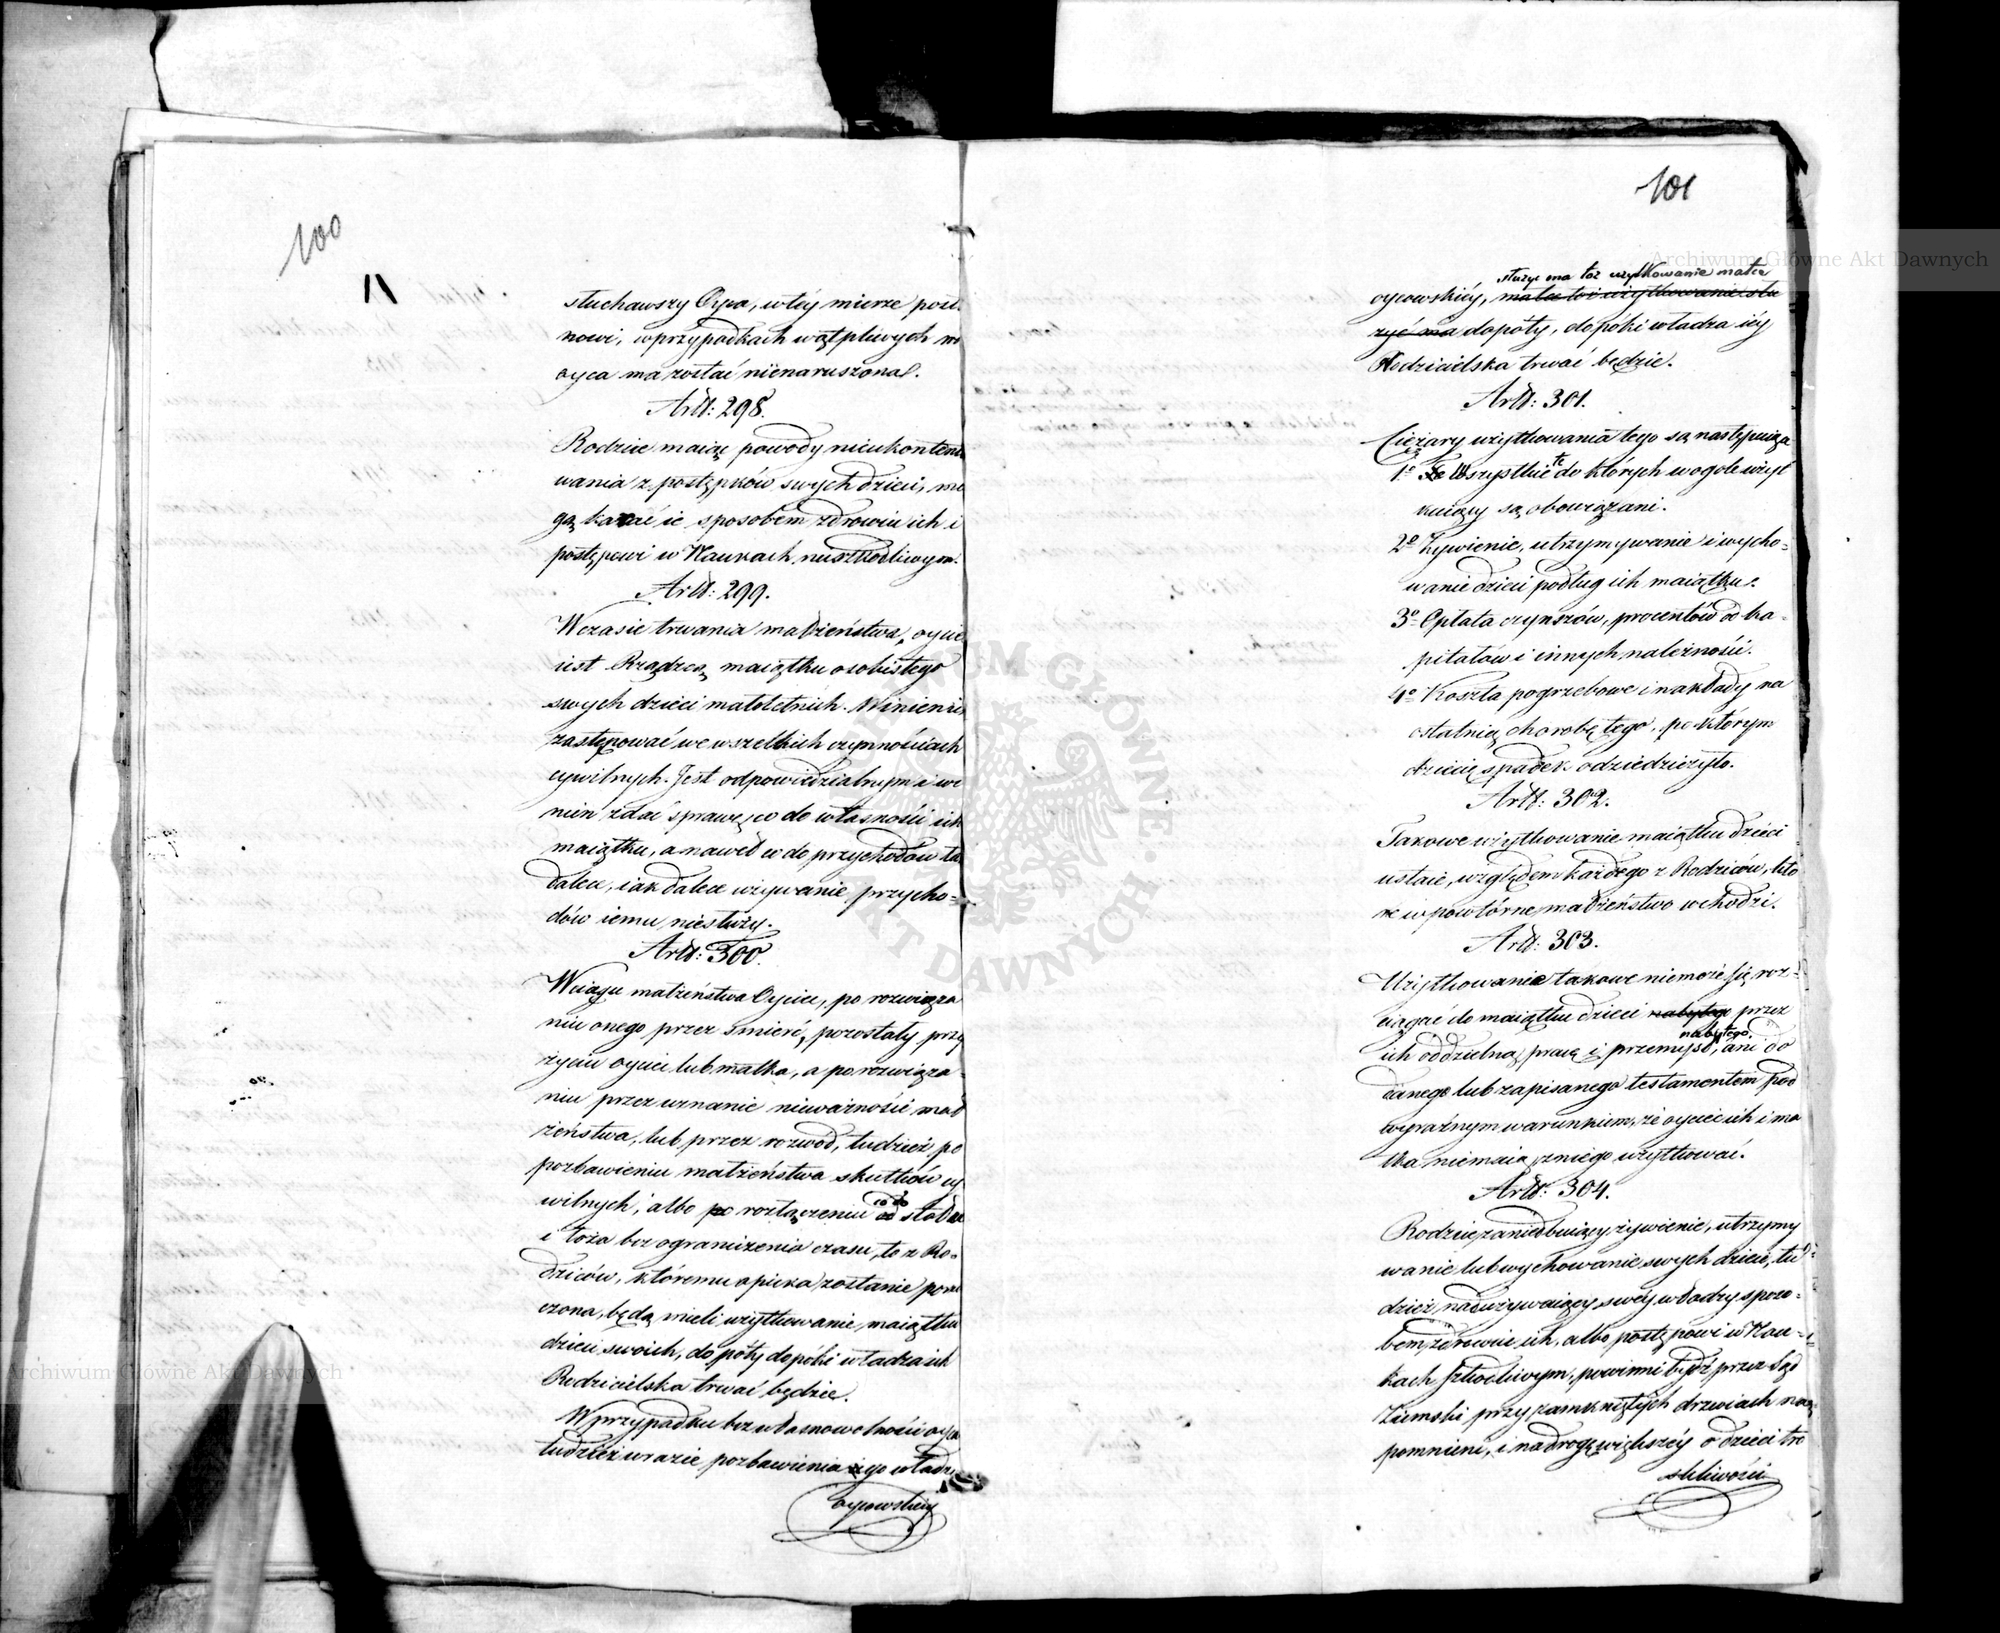 100
słuchawszy Oyca, w tey mierze posta
nowi, w przypadkach wątpliwych wo
oyca ma zostać nienaruszona.
Artt: 298.
Rodzice maiąc powody nieukonten
wania z postępków swych dzieci, mo
gą karać ie sposobem zdrowiu ich i
postępowi w Naukach nieszkodliwym.
Artt: 299.
W czasie trwania małżeństwa, oyciec
iest Rządzcą maiątku osobistego
swych dzieci małoletnich. Winien ie
zastępować we wszelkich czynnościach
cywilnych. Jest odpowiedzialnym i wi
nien zdać sprawę, co do własności ich
maiątku, a nawet co do przychodów ta
dalece, iak dalece używanie przycho=
dów iemu niesłuży.
Artt: 300.
W ciągu małżeństwa Oyciec, po rozwiąza
niu onego przez śmierć, pozostały przy
życiu oyciec lub matka, a po rozwiąza=
niu przez uznanie nieważności mał
żeństwa, lub przez rozwód, tudzież po
pozbawieniu małżeństwa skutków cy
wilnych, albo po rozłączeniu co do stołu
i łoża bez ograniczenia czasu, to z Ro=
dziców, któremu opieka zostanie poru
czona, będą mieli użytkowanie maiątku
dzieci swoich, do póty dopóki władza ich
Rodzicielska trwać będzie.
W przypadku bezwłasnowolności oyca
tudzież w razie pozbawienia go władzy
oycowskiey
101
służyć ma toż użytkowanie matce
oycowskiéy, matce to użytkowanie słu
żyć ma dopóty, dopóki władza iéy
Rodzicielska trwać będzie.
Artt: 301.
Ciężary użytkowania tego są następuiące
1o Wszystkie te do których w ogóle użyt
kuiący są obowiązani.
2o Żywienie, utrzymywanie i wycho=
wanie dzieci podług ich maiątku.
3o Opłata czynszów, procentów od ka=
pitałów i innych należności.
4o Koszta pogrzebowe i nakłady na
ostatnią chorobę tego, po którym
dziecię spadek odziedziczyło.
Artt: 302.
Takowe użytkowanie maiątku dzieci
ustaie, względem każdego z Rodziców, któ
re w powtórne małżeństwo wchodzi.
Artt: 303.
Użytkowanie takowe niemoże się roz=
ciągać do maiątku dzieci nabytego przez
nabytego
ich oddzielną pracę i przemysł, ani do
danego lub zapisanego testamentem pod
wyraźnym warunkiem, że oyciec ich i ma
tka niemaią z niego użytkować.
Artt: 304.
Rodzice, zaniedbuiący żywienie, utrzymy
wanie lub wychowanie swych dzieci, tu=
dzież nadużywaiący swéy władzy sposo=
bem, zdrowiu ich, albo postępowi w Nau=
kach szkodliwym, powinni bydź przez Sąd
Ziemski przy zamkniętych drzwiach na=
pomnieni, i na drogę większéy o dzieci tro
skliwości
Archiwum Główne Akt Dawnych
Archiwum Główne Akt Dawnych